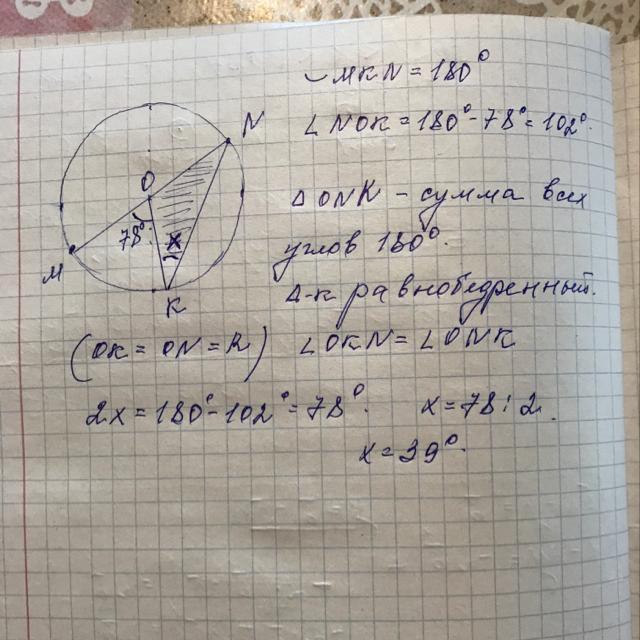 ◡ MKN = 180°
∠NOK = 180° - 78° = 102°.
N
O
78°
x
M
K
Δ ONK - сумма всех
углов 180°.
Δ-к равнобедренный.
(OK = ON = R) ∠OKN = ∠ONK
2x = 180° - 102° = 78°. x = 78 : 2.
x = 39°.